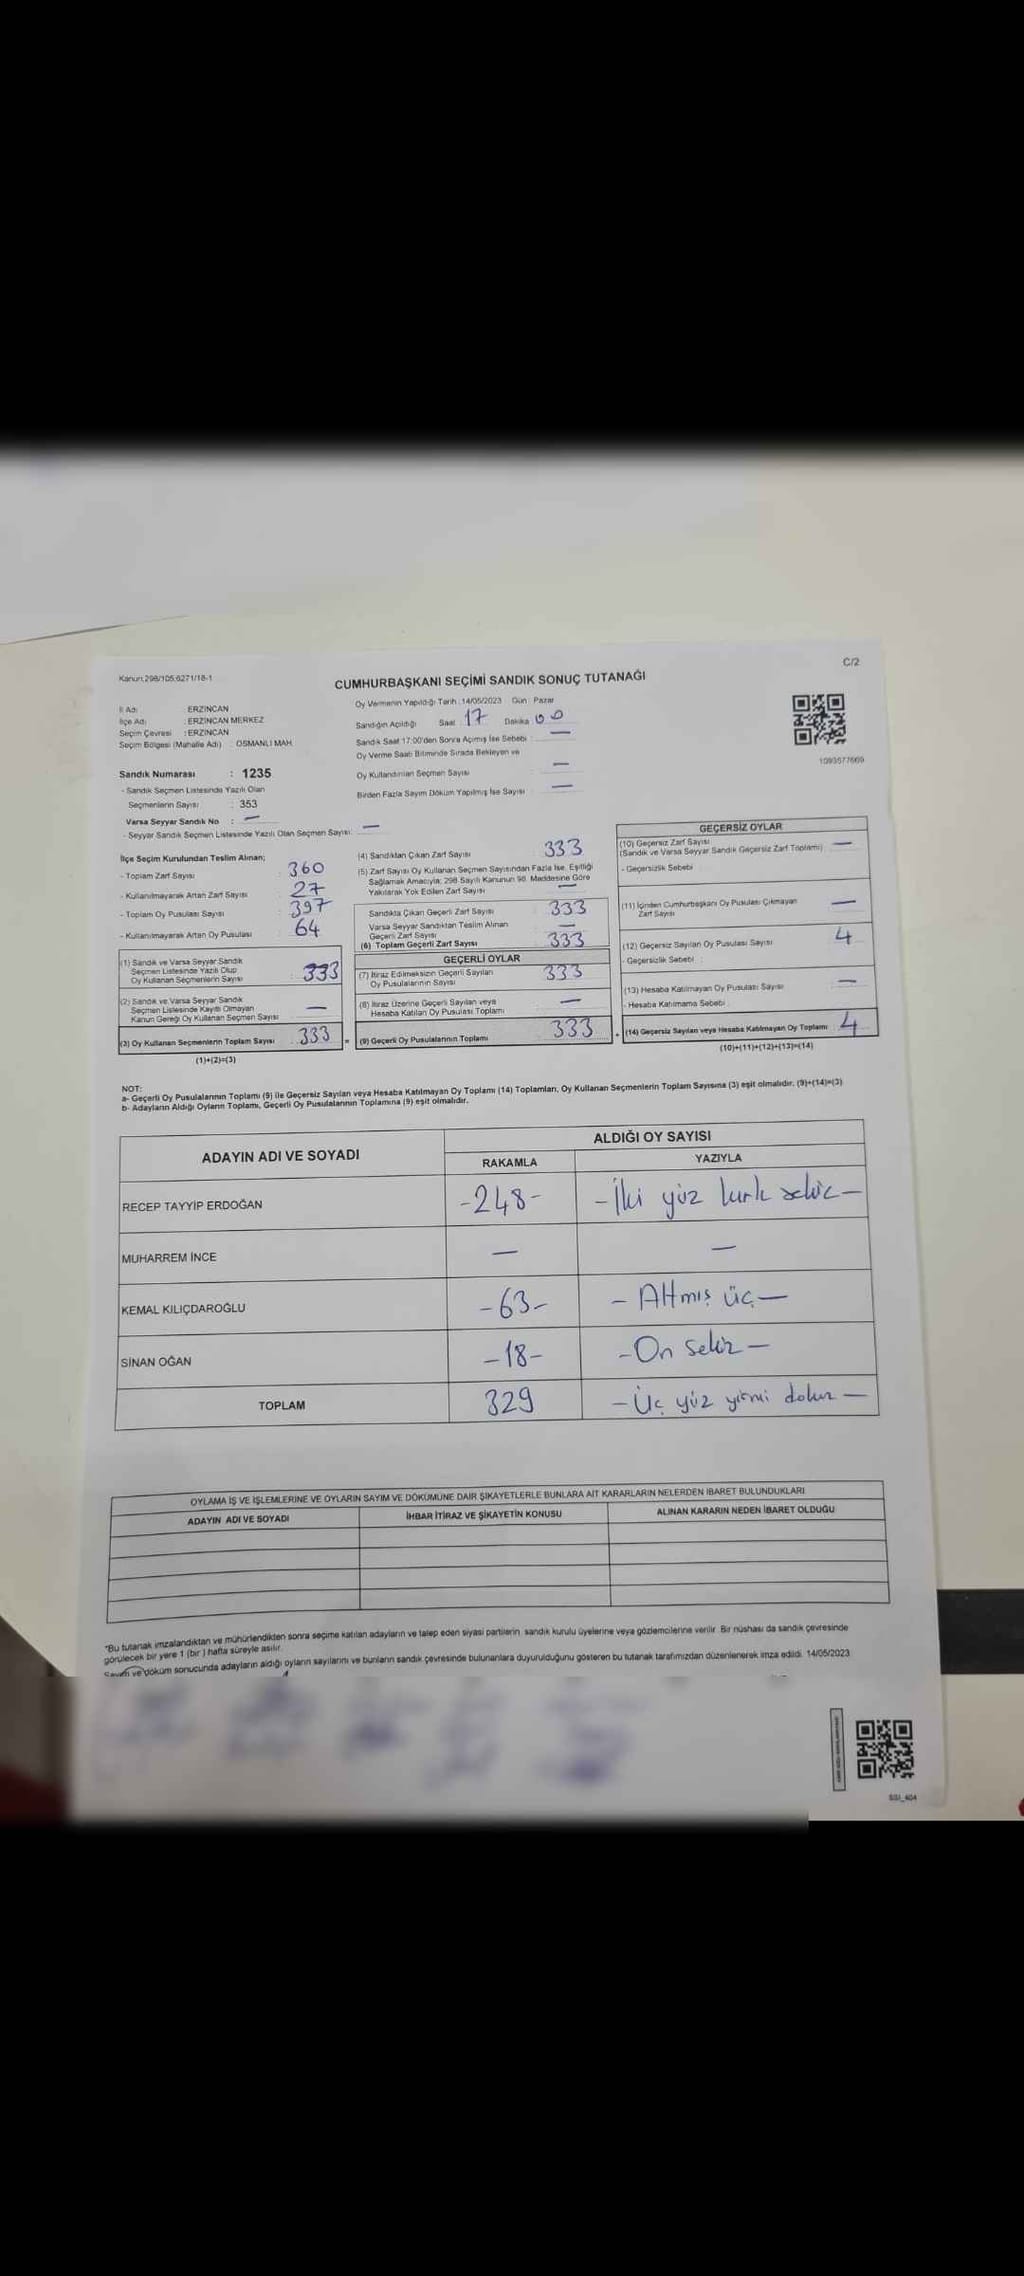 C/2
Kanun:298/105,6271/18-1
CUMHURBAŞKANI SEÇİMİ SANDIK SONUÇ TUTANAĞI
İl Adı : ERZİNCAN
İlçe Adı : ERZİNCAN MERKEZ
Seçim Çevresi : ERZİNCAN
Seçim Bölgesi (Mahalle Adı) : OSMANLI MAH.
Sandık Numarası : 1235
- Sandık Seçmen Listesinde Yazılı Olan
Seçmenlerin Sayısı : 353
Varsa Seyyar Sandık No : —
- Seyyar Sandık Seçmen Listesinde Yazılı Olan Seçmen Sayısı: —
Oy Vermenin Yapıldığı Tarih : 14/05/2023 Gün : Pazar
Sandığın Açıldığı Saat : 17 Dakika : 00
Sandık Saat 17:00'den Sonra Açılmış İse Sebebi : —
Oy Verme Saati Bitiminde Sırada Bekleyen ve
Oy Kullandırılan Seçmen Sayısı : —
Birden Fazla Sayım Döküm Yapılmış İse Sayısı : —
1093577669
İlçe Seçim Kurulundan Teslim Alınan;
- Toplam Zarf Sayısı : 360
- Kullanılmayarak Artan Zarf Sayısı : 27
- Toplam Oy Pusulası Sayısı : 397
- Kullanılmayarak Artan Oy Pusulası : 64
(1) Sandık ve Varsa Seyyar Sandık
Seçmen Listesinde Yazılı Olup
Oy Kullanan Seçmenlerin Sayısı : 333
(2) Sandık ve Varsa Seyyar Sandık
Seçmen Listesinde Kayıtlı Olmayan
Kanun Gereği Oy Kullanan Seçmen Sayısı : —
(3) Oy Kullanan Seçmenlerin Toplam Sayısı : 333 =
(1)+(2)=(3)
(4) Sandıktan Çıkan Zarf Sayısı : 333
(5) Zarf Sayısı Oy Kullanan Seçmen Sayısından Fazla İse, Eşitliği
Sağlamak Amacıyla; 298 Sayılı Kanunun 98. Maddesine Göre
Yakılarak Yok Edilen Zarf Sayısı : —
Sandıkta Çıkan Geçerli Zarf Sayısı : 333
Varsa Seyyar Sandıktan Teslim Alınan
Geçerli Zarf Sayısı : —
(6) Toplam Geçerli Zarf Sayısı : 333
GEÇERLİ OYLAR
(7) İtiraz Edilmeksizin Geçerli Sayılan
Oy Pusulalarının Sayısı : 333
(8) İtiraz Üzerine Geçerli Sayılan veya
Hesaba Katılan Oy Pusulası Toplamı : —
(9) Geçerli Oy Pusulalarının Toplamı : 333 +
GEÇERSİZ OYLAR
(10) Geçersiz Zarf Sayısı
(Sandık ve Varsa Seyyar Sandık Geçersiz Zarf Toplamı) : —
- Geçersizlik Sebebi :
(11) İçinden Cumhurbaşkanı Oy Pusulası Çıkmayan
Zarf Sayısı : —
(12) Geçersiz Sayılan Oy Pusulası Sayısı : 4
- Geçersizlik Sebebi :
(13) Hesaba Katılmayan Oy Pusulası Sayısı : —
- Hesaba Katılmama Sebebi :
(14) Geçersiz Sayılan veya Hesaba Katılmayan Oy Toplamı : 4
(10)+(11)+(12)+(13)=(14)
NOT:
a- Geçerli Oy Pusulalarının Toplamı (9) ile Geçersiz Sayılan veya Hesaba Katılmayan Oy Toplamı (14) Toplamları, Oy Kullanan Seçmenlerin Toplam Sayısına (3) eşit olmalıdır. (9)+(14)=(3)
b- Adayların Aldığı Oyların Toplamı, Geçerli Oy Pusulalarının Toplamına (9) eşit olmalıdır.
ADAYIN ADI VE SOYADI
ALDIĞI OY SAYISI
RAKAMLA YAZIYLA
RECEP TAYYİP ERDOĞAN -248- -İki yüz kırk sekiz-
MUHARREM İNCE — —
KEMAL KILIÇDAROĞLU -63- -Altmış üç-
SİNAN OĞAN -18- -On sekiz-
TOPLAM 329 -Üç yüz yirmi dokuz-
OYLAMA İŞ VE İŞLEMLERİNE VE OYLARIN SAYIM VE DÖKÜMÜNE DAİR ŞİKAYETLERLE BUNLARA AİT KARARLARIN NELERDEN İBARET BULUNDUKLARI
ADAYIN ADI VE SOYADI İHBAR İTİRAZ VE ŞİKAYETİN KONUSU ALINAN KARARIN NEDEN İBARET OLDUĞU
*Bu tutanak imzalandıktan ve mühürlendikten sonra seçime katılan adayların ve talep eden siyasi partilerin, sandık kurulu üyelerine veya gözlemcilerine verilir. Bir nüshası da sandık çevresinde
görülecek bir yere 1 (bir) hafta süreyle asılır.
Sayım ve döküm sonucunda adayların aldığı oyların sayılarını ve bunların sandık çevresinde bulunanlara duyurulduğunu gösteren bu tutanak tarafımızdan düzenlenerek imza edildi. 14/05/2023
SSI_404